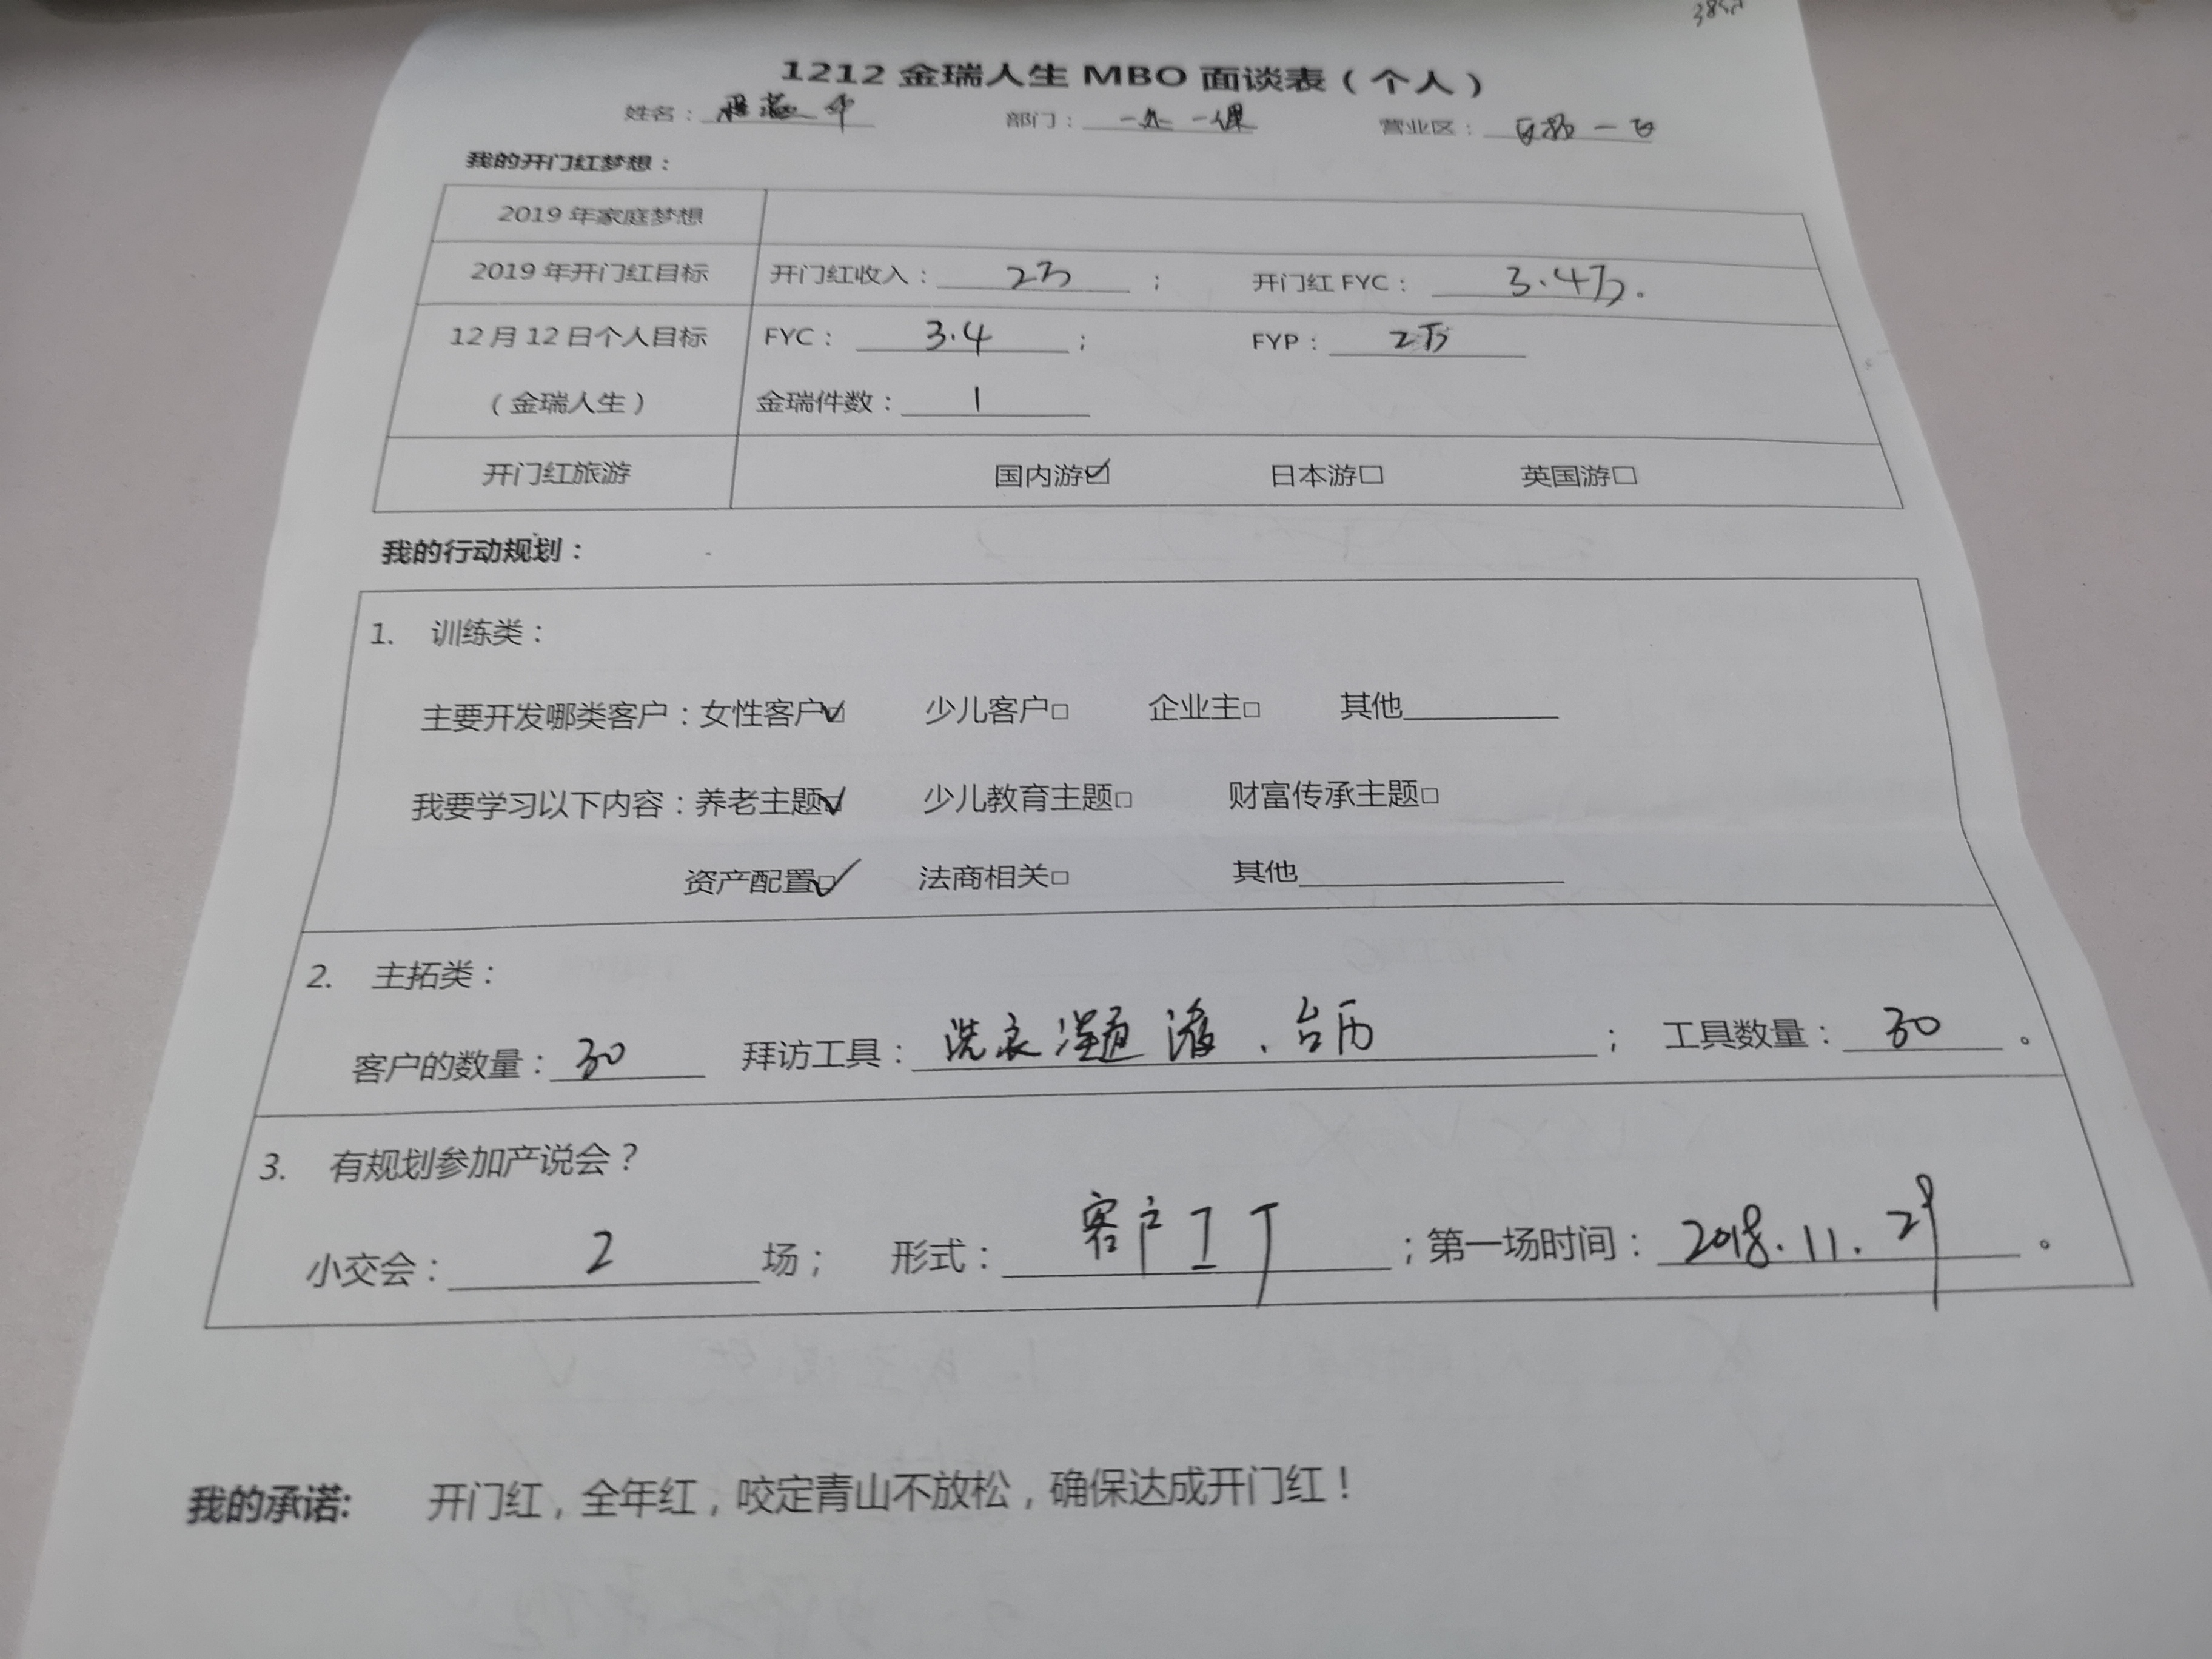 1212金瑞人生MBO面谈表（个人）
姓名： 部门：一处一课 营业区：
我的开门红梦想：
2019年家庭梦想
2019年开门红目标 开门红收入：2万； 开门红FYC：3.4万。
12月12日个人目标 FYC：3.4； FYP：2万
（金瑞人生） 金瑞件数：1
开门红旅游 国内游☑ 日本游□ 英国游□
我的行动规划：
1. 训练类：
主要开发哪类客户：女性客户☑ 少儿客户□ 企业主□ 其他
我要学习以下内容：养老主题☑ 少儿教育主题□ 财富传承主题□
资产配置☑ 法商相关□ 其他
2. 主拓类：
客户的数量：30 拜访工具：洗衣凝 、台历； 工具数量：30。
3. 有规划参加产说会？
小交会：2场； 形式：客户；第一场时间：2018.11.29。
我的承诺: 开门红，全年红，咬定青山不放松，确保达成开门红！